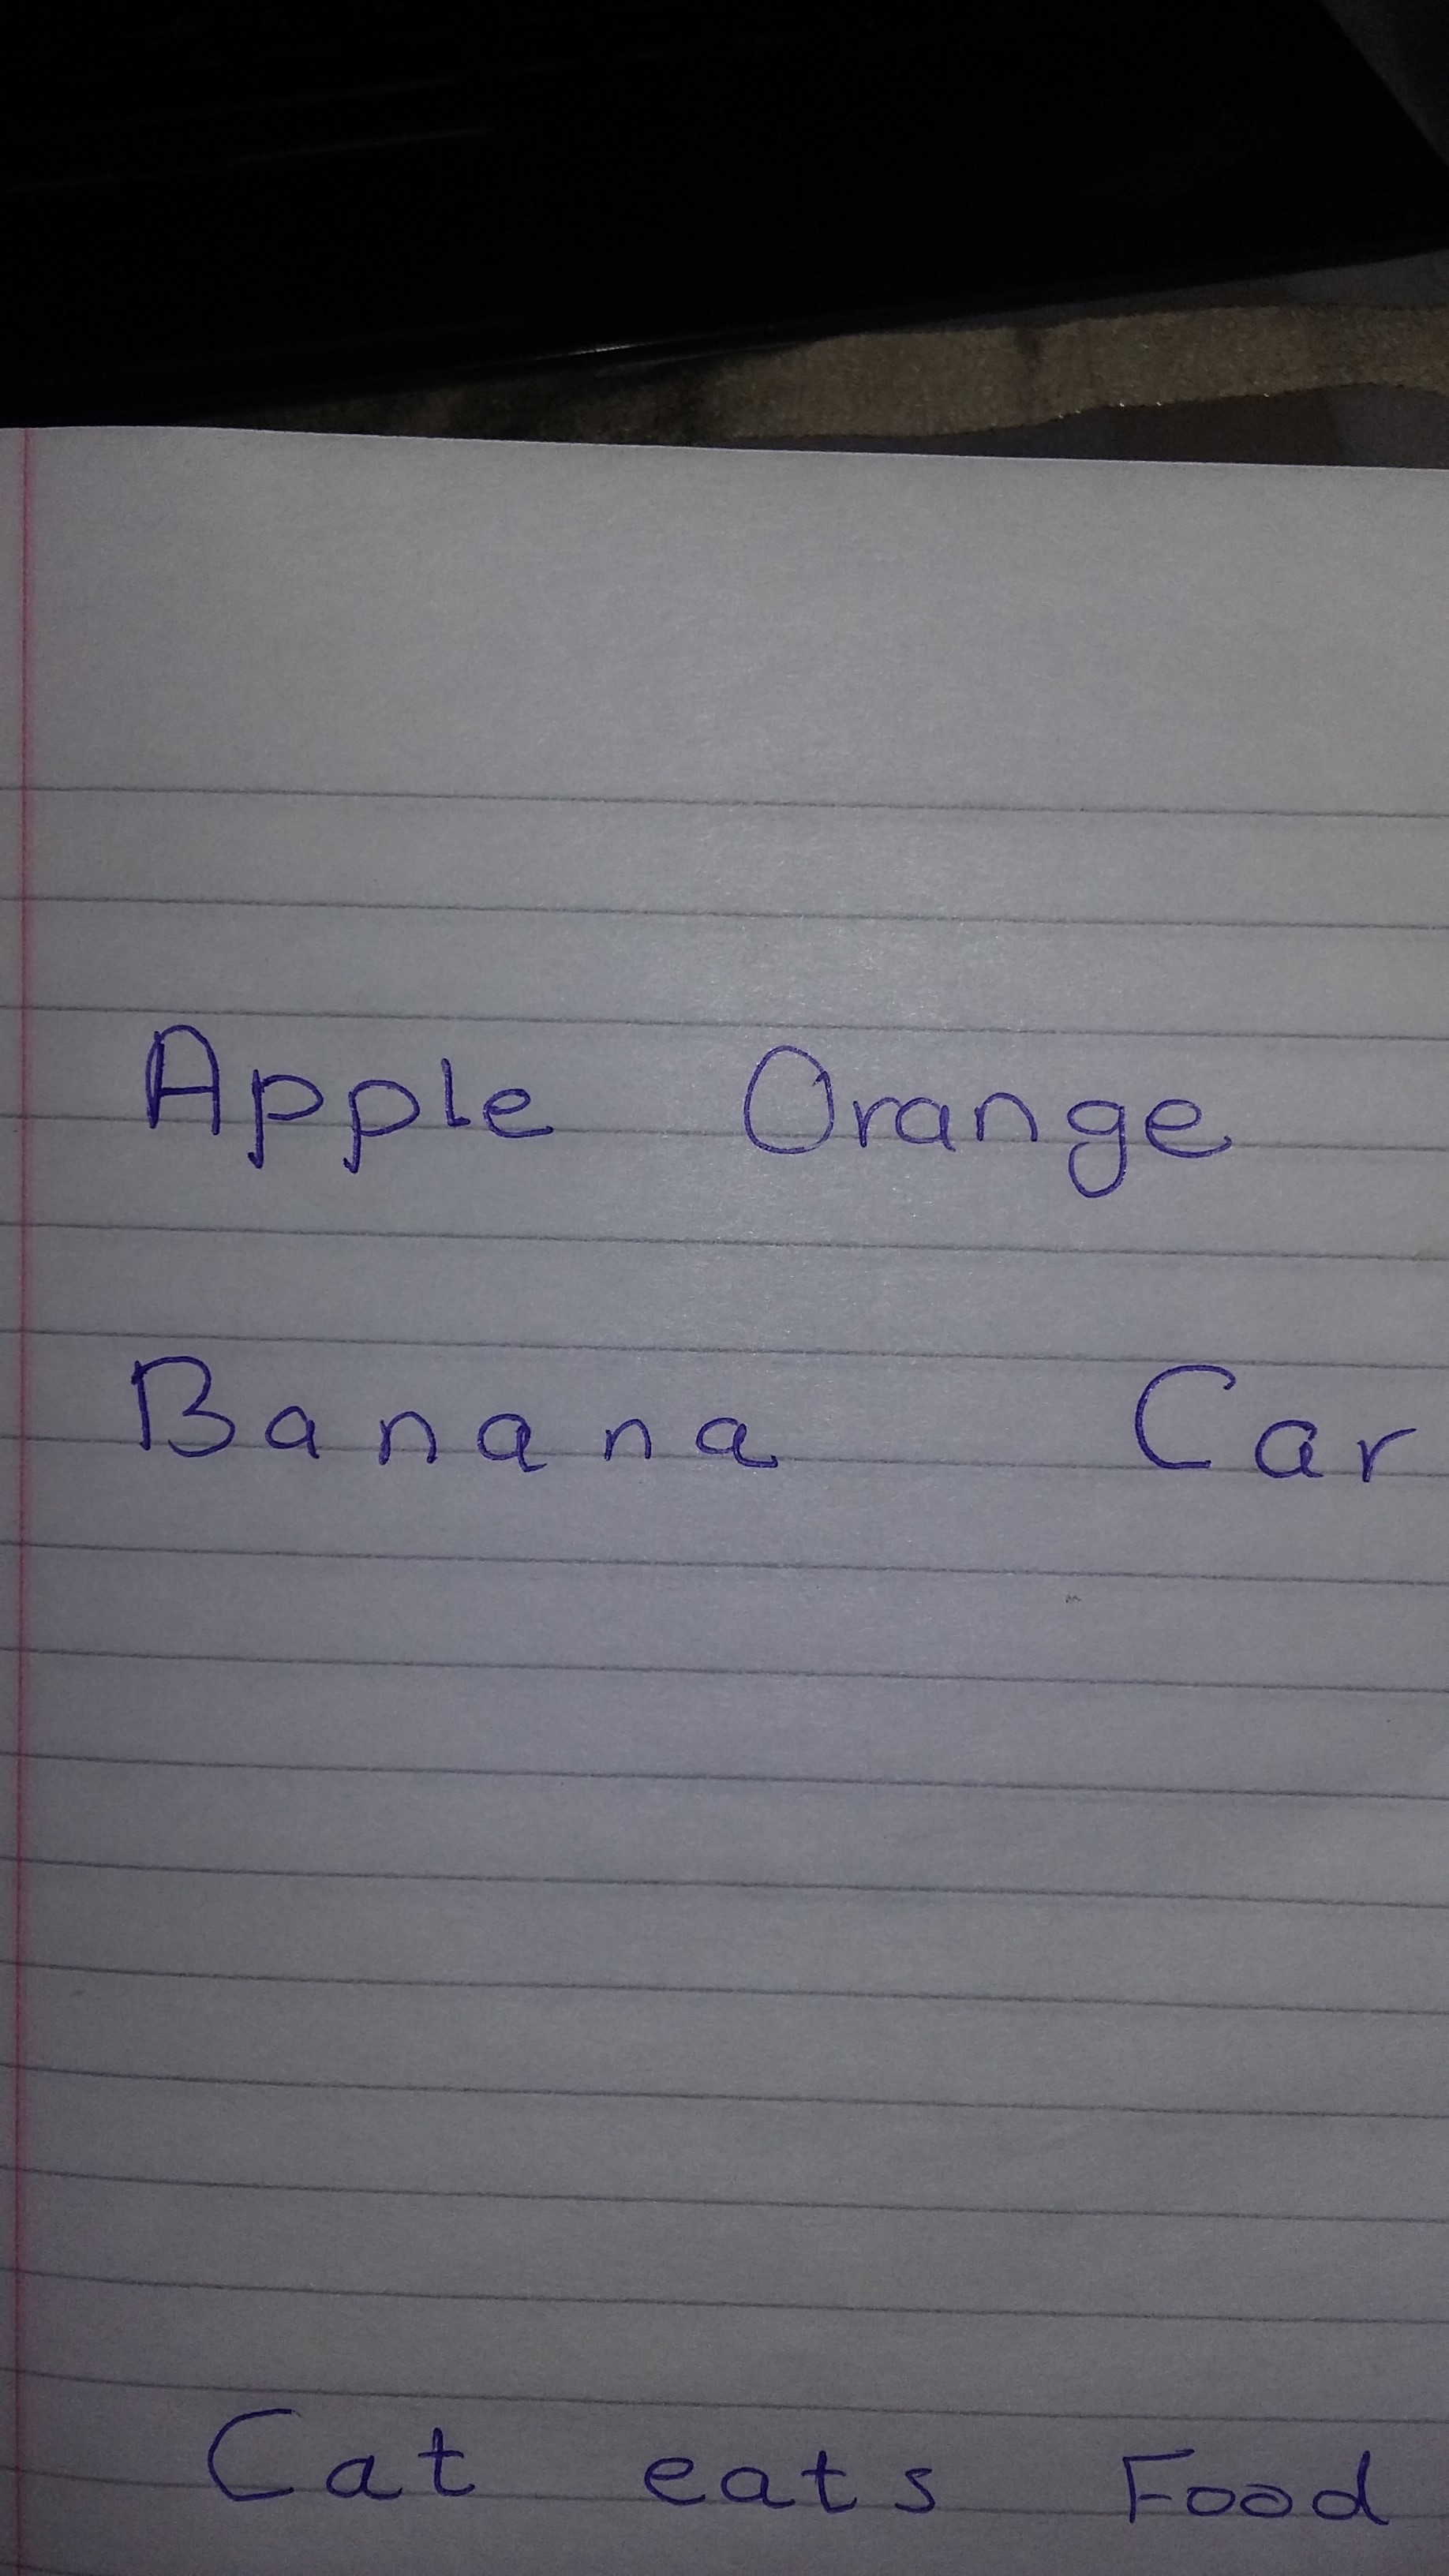 Apple Orange
Banana Car
Cat eats Food